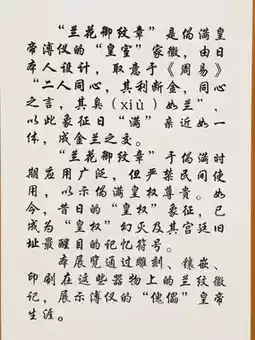 “兰花御纹章”是伪满皇
帝溥仪的“皇室”家徽，由日
本人设计，取意于《周易》
“二人同心，其利断金，同心
之言，其臭（xiù）如兰”，
以此象征日“满”亲近如一
体，成金兰之交。
“兰花御纹章”于伪满时
期应用广泛，但严禁民间使
用，以示伪满皇权尊贵。如
今，昔日的“皇权”象征，已
成为“皇权”幻灭及其宫廷旧
址最醒目的记忆符号。
本展览通过雕刻、镶嵌、
印刷在这些器物上的兰纹徽
记，展示溥仪的“傀儡”皇帝
生涯。